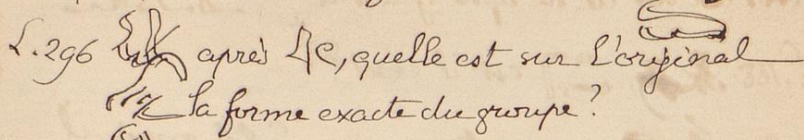 L. 296 après , quelle est sur l'original
la forme exacte du groupe?